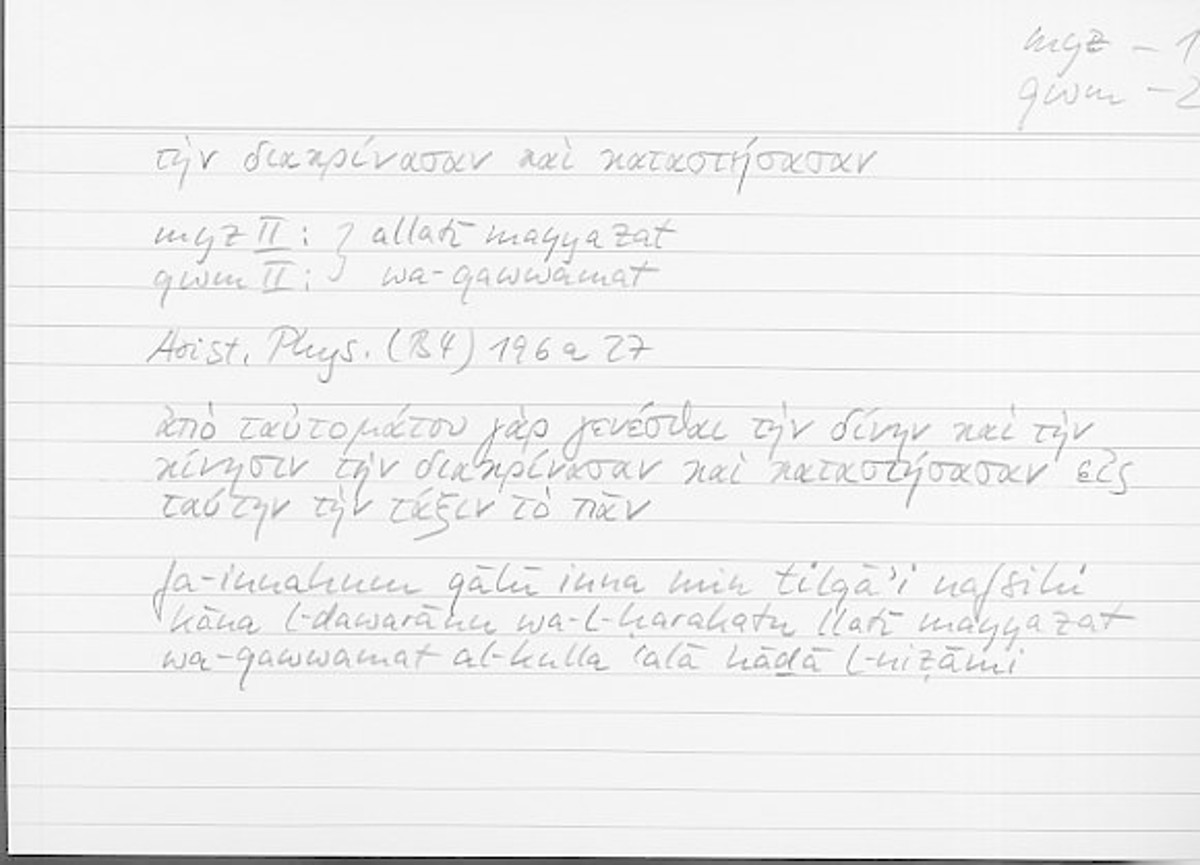 myz – 1
qwm – 2
τὴν διακρίνασαν καὶ καταστήσασαν
myz II : } allatī mayyazat
qwm II : } wa-qawwamat
Arist. Phys. (B4) 196 a 27
ἀπὸ ταὐτομάτου γὰρ γενέσθαι τὴν δίνην καὶ τὴν
κίνησιν τὴν διακρίνασαν καὶ καταστήσασαν εἰς
ταύτην τὴν τάξιν τὸ πᾶν
fa-innahum qālū inna min tilqāʾi nafsihī
kāna l-dawarānu wa-l-ḥarakatu llatī mayyazat
wa-qawwamat al-kulla ʿalā hāḏā l-niẓāmi